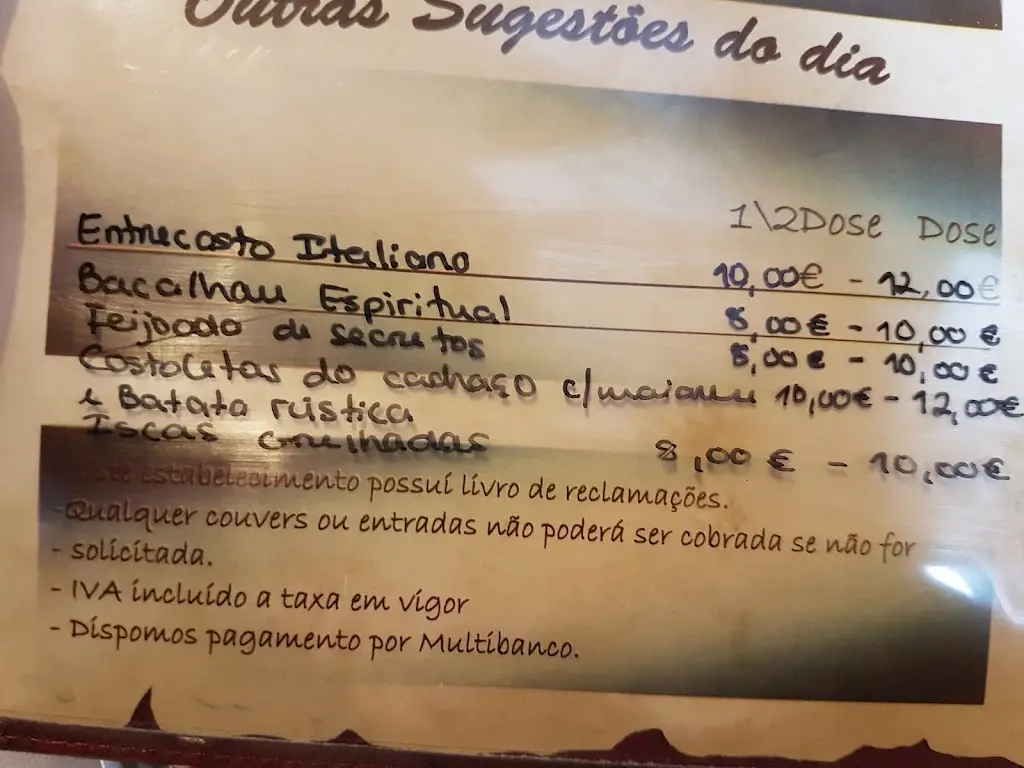 Outras Sugestões do dia
1\2Dose Dose
Entrecosto Italiano 10,00€ - 12,00€
Bacalhau Espiritual 8,00€ - 10,00€
Feijoada de secretos 8,00€ - 10,00€
Costoletas do cachaço c/ 10,00€ - 12,00€
e Batata rústica
Iscas Grelhadas 8,00€ - 10,00€
este estabelecimento possuí livro de reclamações.
-Qualquer couvers ou entradas não poderá ser cobrada se não for
- solicitada.
- IVA incluído a taxa em vigor
- Dispomos pagamento por Multibanco.